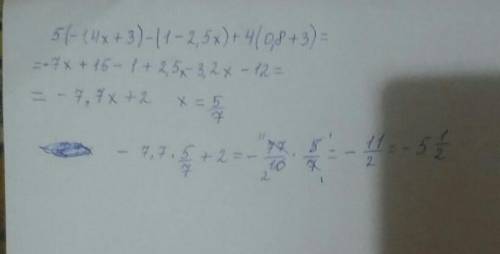 5(-1,4x+3)-(1-2,5x)+4(0,8+3)=
=-7x+15-1+2,5x-3,2x-12=
=-7,7x+2 x=5/7
-7,7·5/7+2=-77/10·5/7=-11/2=-5 1/2